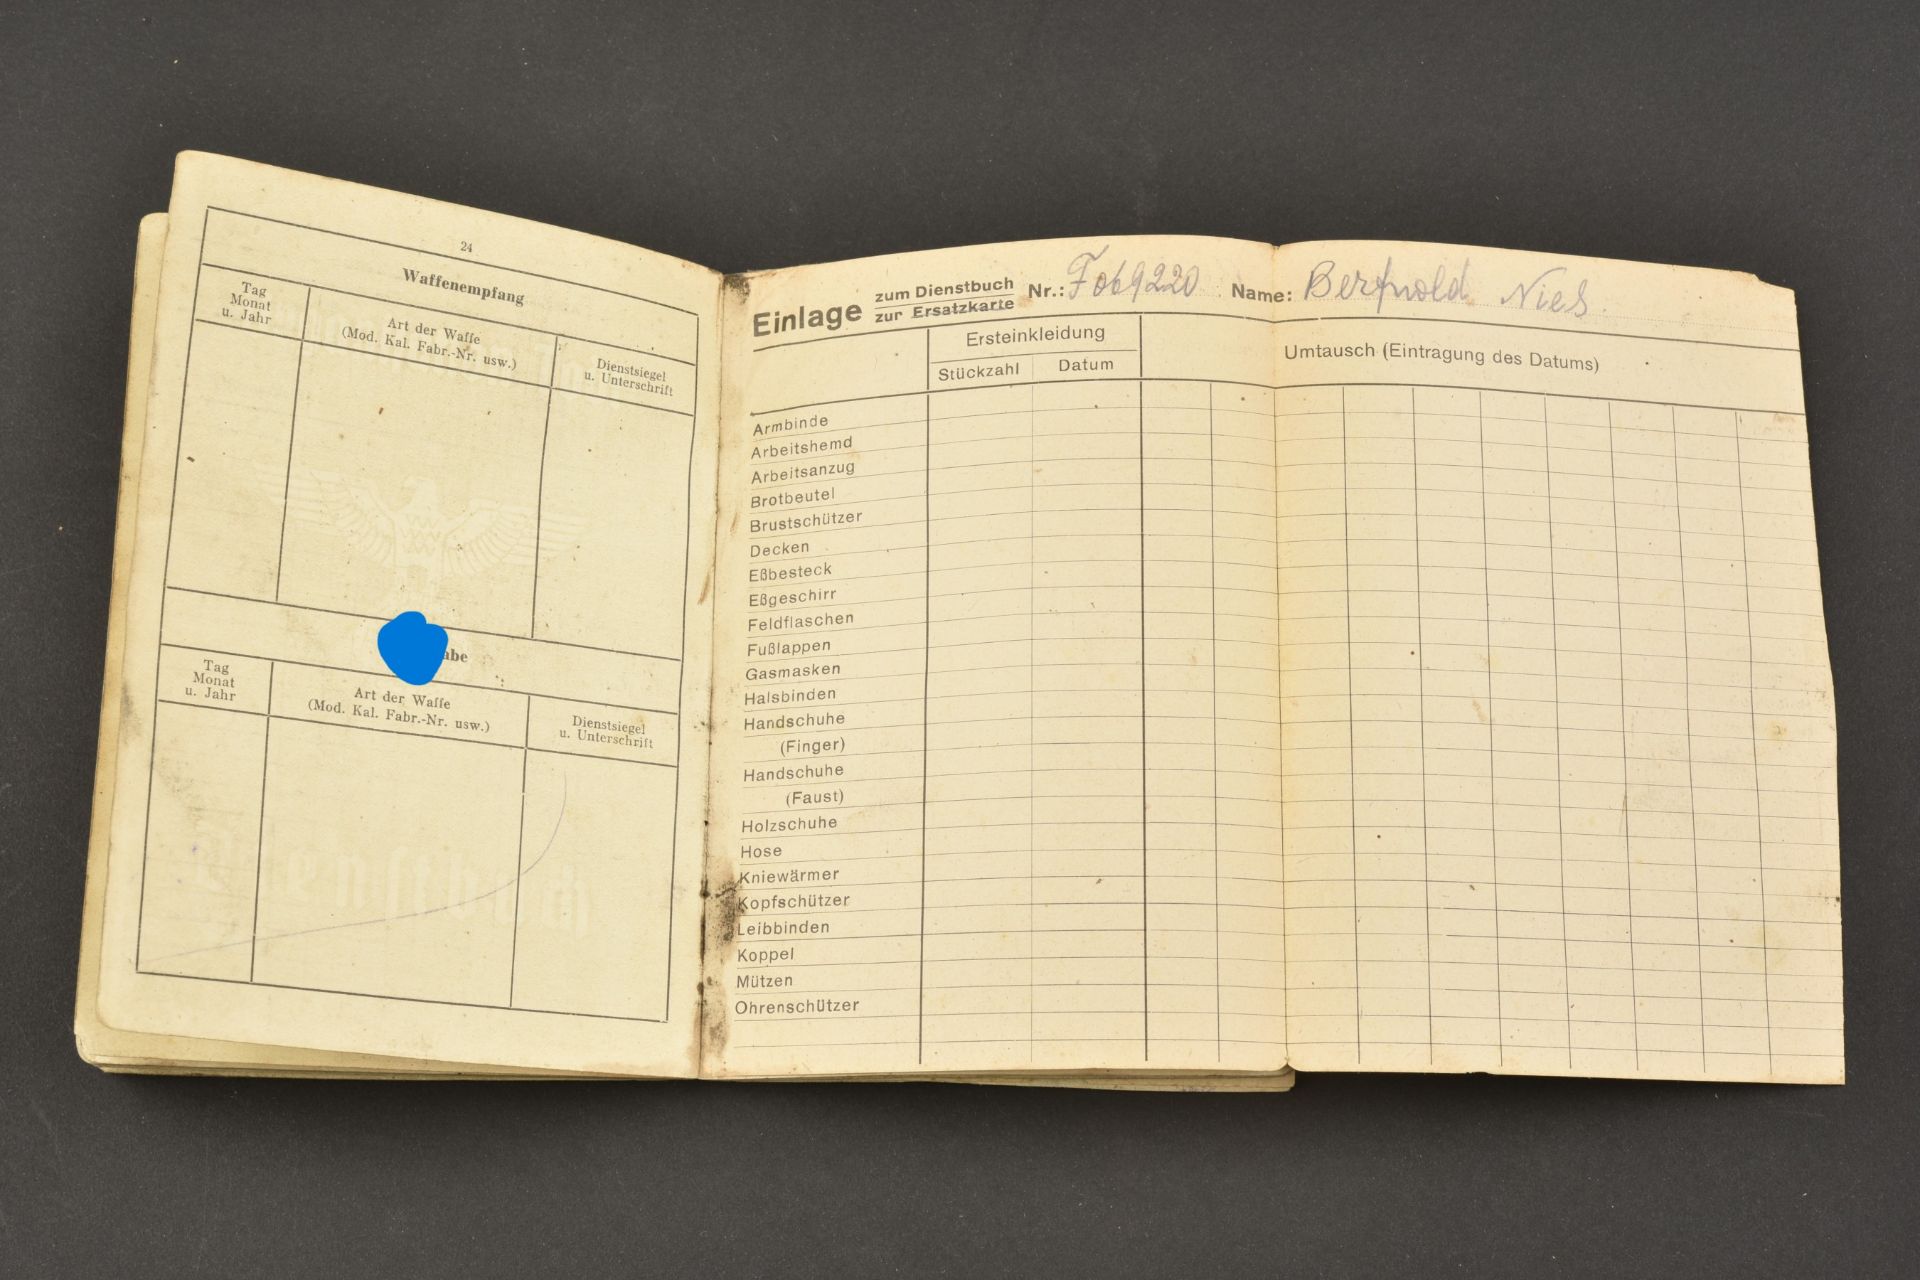 24
Waffenempfang
Tag
Monat
u. Jahr
Art der Waffe
(Mod. Kal. Fabr.-Nr. usw.)
Dienstsiegel
u. Unterschrift
abe
Tag
Monat
u. Jahr
Art der Waffe
(Mod. Kal. Fabr.-Nr. usw.)
Dienstsiegel
u. Unterschrift
Einlage zum Dienstbuch
zur Ersatzkarte
Nr.: F069220 Name: Berthold Nies
Ersteinkleidung
Stückzahl Datum
Umtausch (Eintragung des Datums)
Armbinde
Arbeitshemd
Arbeitsanzug
Brotbeutel
Brustschützer
Decken
Eßbesteck
Eßgeschirr
Feldflaschen
Fußlappen
Gasmasken
Halsbinden
Handschuhe
(Finger)
Handschuhe
(Faust)
Holzschuhe
Hose
Kniewärmer
Kopfschützer
Leibbinden
Koppel
Mützen
Ohrenschützer